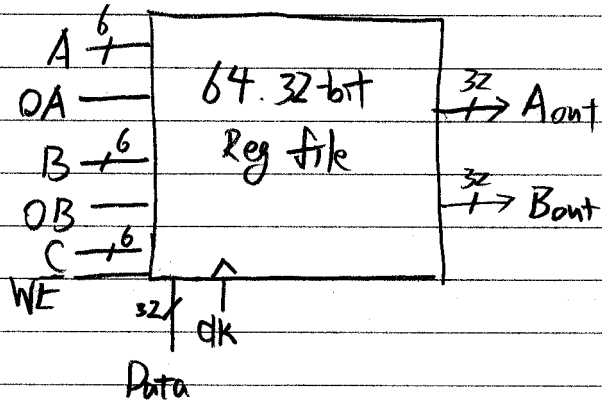 6
A
OA
B
6
OB
C
6
WE
64.32-bit
Reg file
32
Aout
32
Bout
32
clk
Data